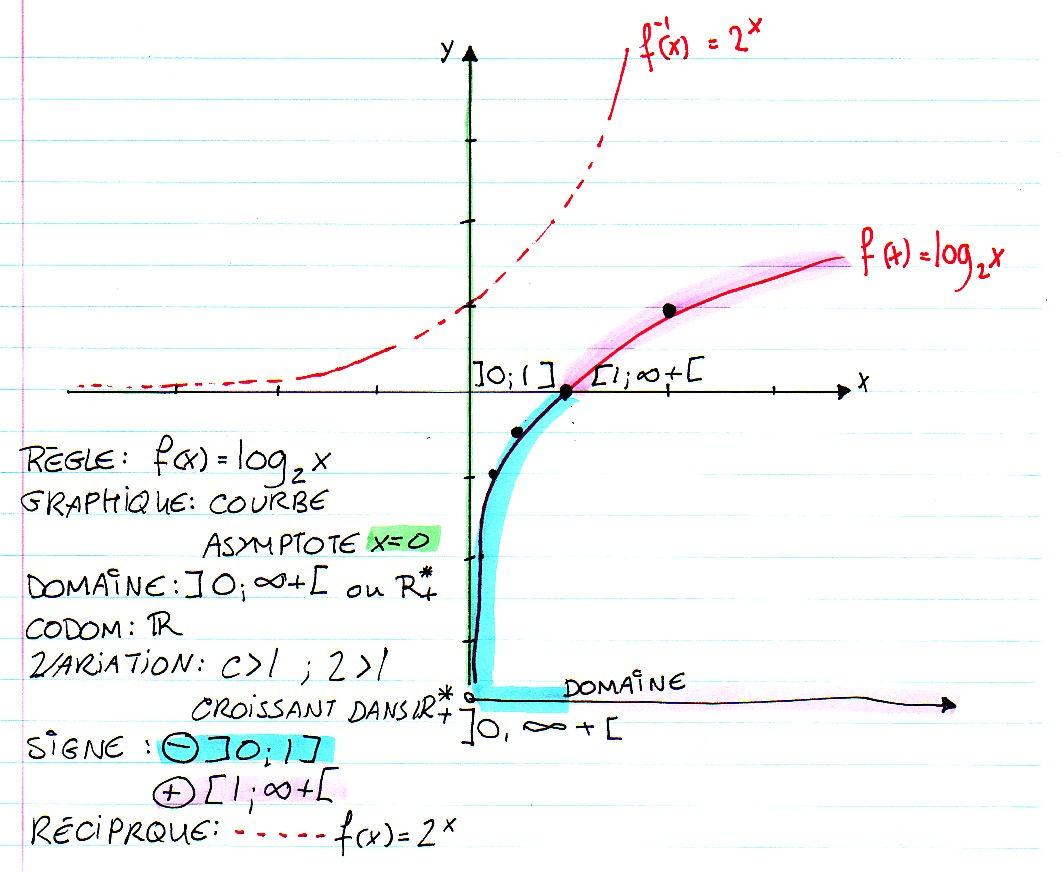 y
f⁻¹(x) = 2ˣ
f(x) = log₂x
]0;1] [1;∞+[
x
RÈGLE: f(x) = log₂x
GRAPHIQUE: COURBE
ASYMPTOTE x=0
DOMAINE: ]0;∞+[ ou R*₊
CODOM: ℝ
VARIATION: C>1 ; 2>1
CROISSANT DANS ℝ*₊
DOMAINE
]0, ∞+[
SIGNE: ⊖ ]0;1]
⊕ [1;∞+[
RÉCIPRQUE: ----- f(x)=2ˣ